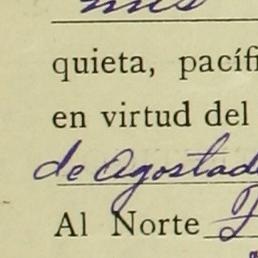 quieta, pacífi
en virtud del
de Agostad
Al Norte